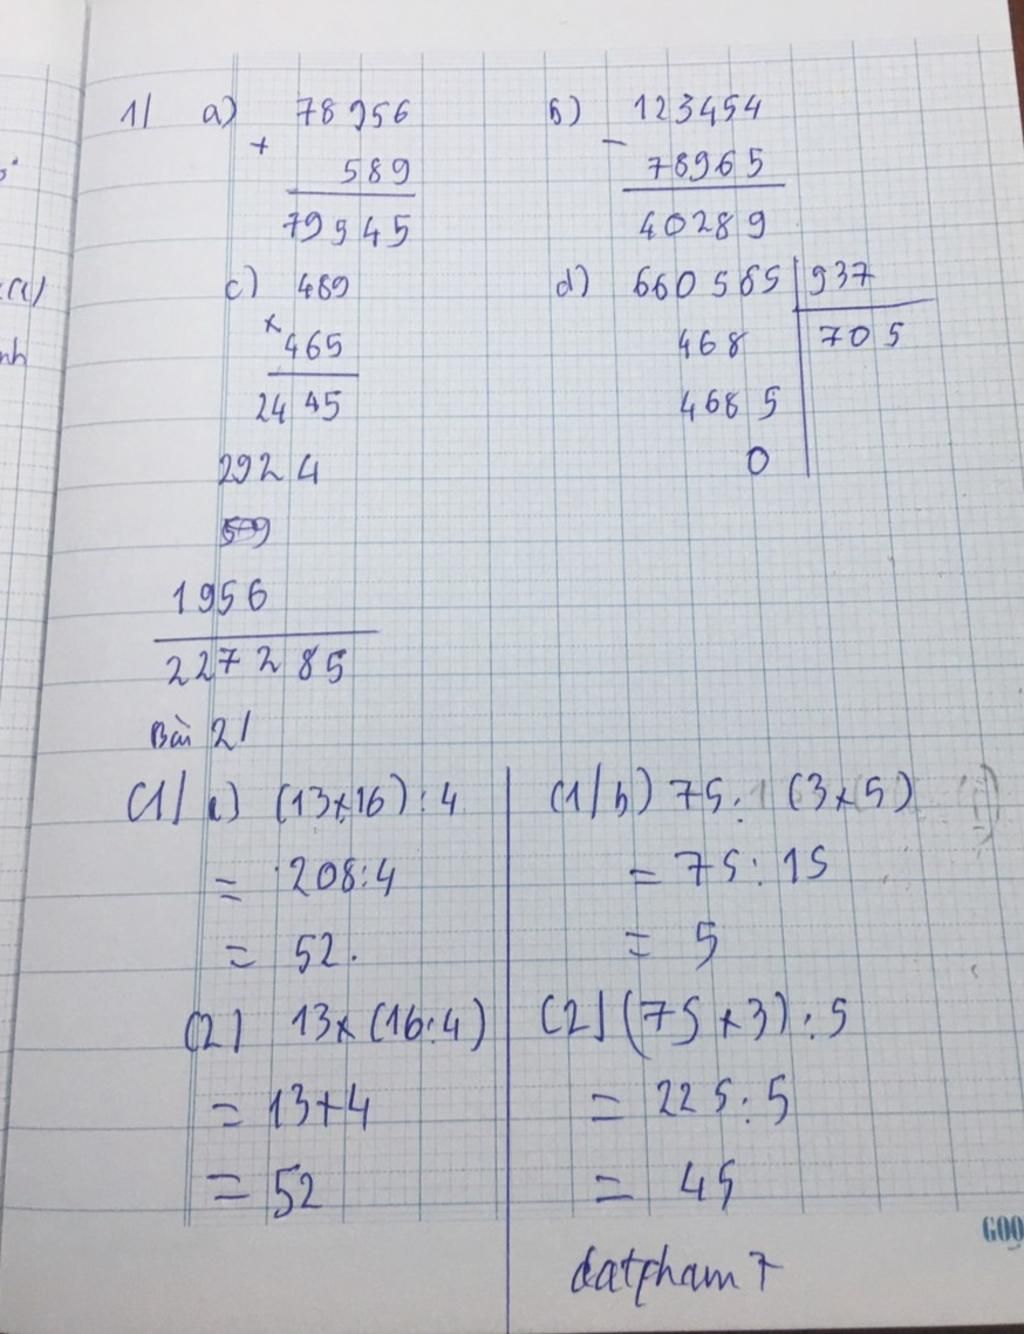 1/ a) 78956 b) 123454
+ −
589 78965
79545 40289
c) 489 d) 660585 937
x 465 468 705
2445 4685
2924 0
1956
227285
Bài 2/
C1/ a) (13x16) : 4
= 208:4
= 52.
(2) 13x (16:4)
= 13+4
= 52
(1/ b) 75: (3x5)
= 75: 15
= 5
(2) (75 x 3) : 5
= 225:5
= 45
datpham7